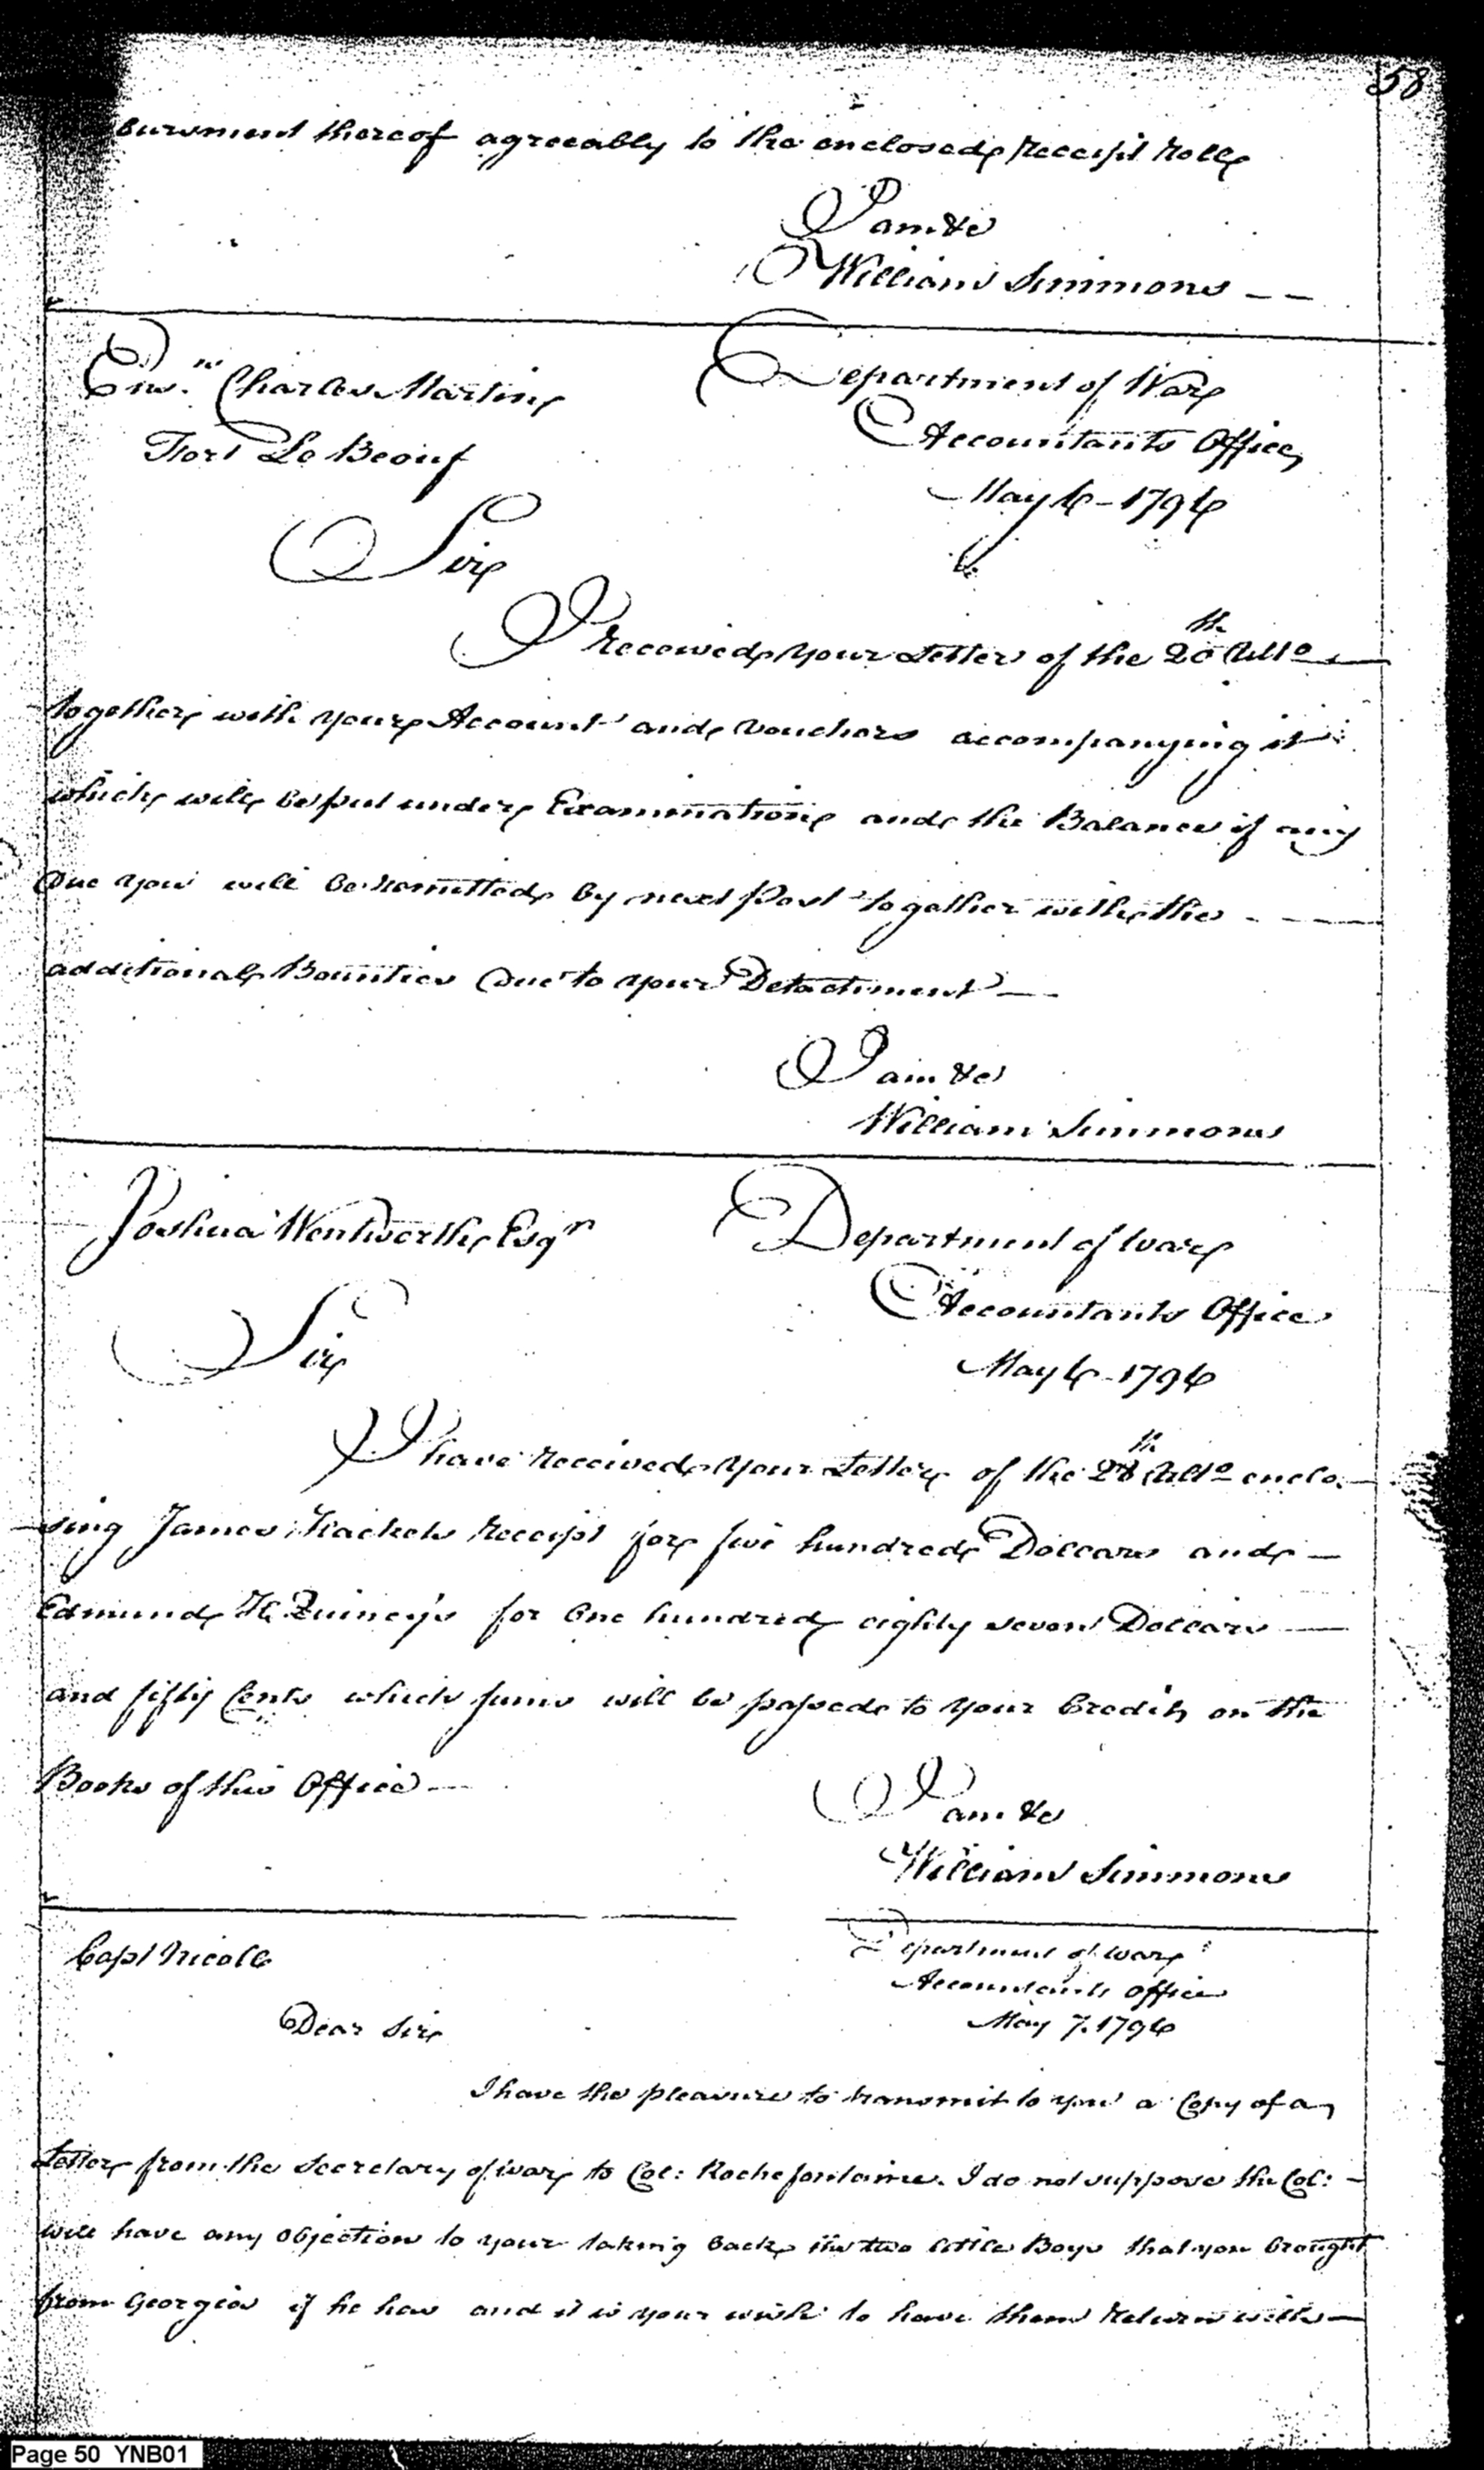 58
bursment thereof agreeably to the enclosed Receipt Roll
I am &c
William Simmons
Ens.n Charles Martin
Department of War
Fort Le Beouf
Accountants Office,
May 6-1796
Sir
I received your Letter of the 20th Ulto
together with your Account and Vouchers accompanying it
which will be put under Examination and the Balance if any
Due you will be remitted by next Post together with the
additional Bounties Due to your Detachment
I am &c
William Simmons
Joshua Wentworth Esqr
Department of War
Accountants Office
Sir
May 6-1796
I have received your Letter of the 28th Ulto enclo-
-sing James Hackets Receipt for five hundred Dollars and
Edmund H Quincy's for One hundred eighty seven Dollars
and fifty Cents which sums will be passed to your Credit on the
Books of this Office
I am &c
William Simmons
Capt Nicoll
Department of War
Accountants Office
Dear Sir
May 7. 1796
I have the pleasure to transmit to you a Copy of a
Letter from the Secretary of War to Col: Rochefontaine. I do not suppose the Col:
will have any objection to your taking back the two little Boys that you brought
from Georgia if he has and it is your wish to have them Return with
Page 50 YNB01